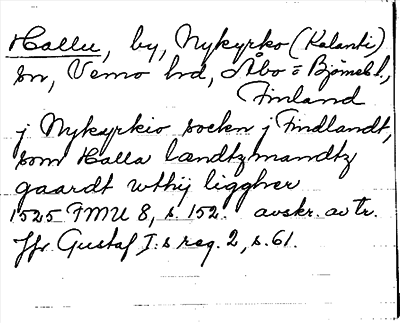 Hallu, by, Nykyrko (Kalanti)
sn, Vemo hd, Åbo = Björneb. l.,
Finland
j Nykyrkio socken j Findlandt,
som Halla lændtzmandtz
gaardt wthij liggher
1525 FMU 8, s. 152. avskr. av tr.
Jfr Gustaf I:s reg. 2, s. 61.